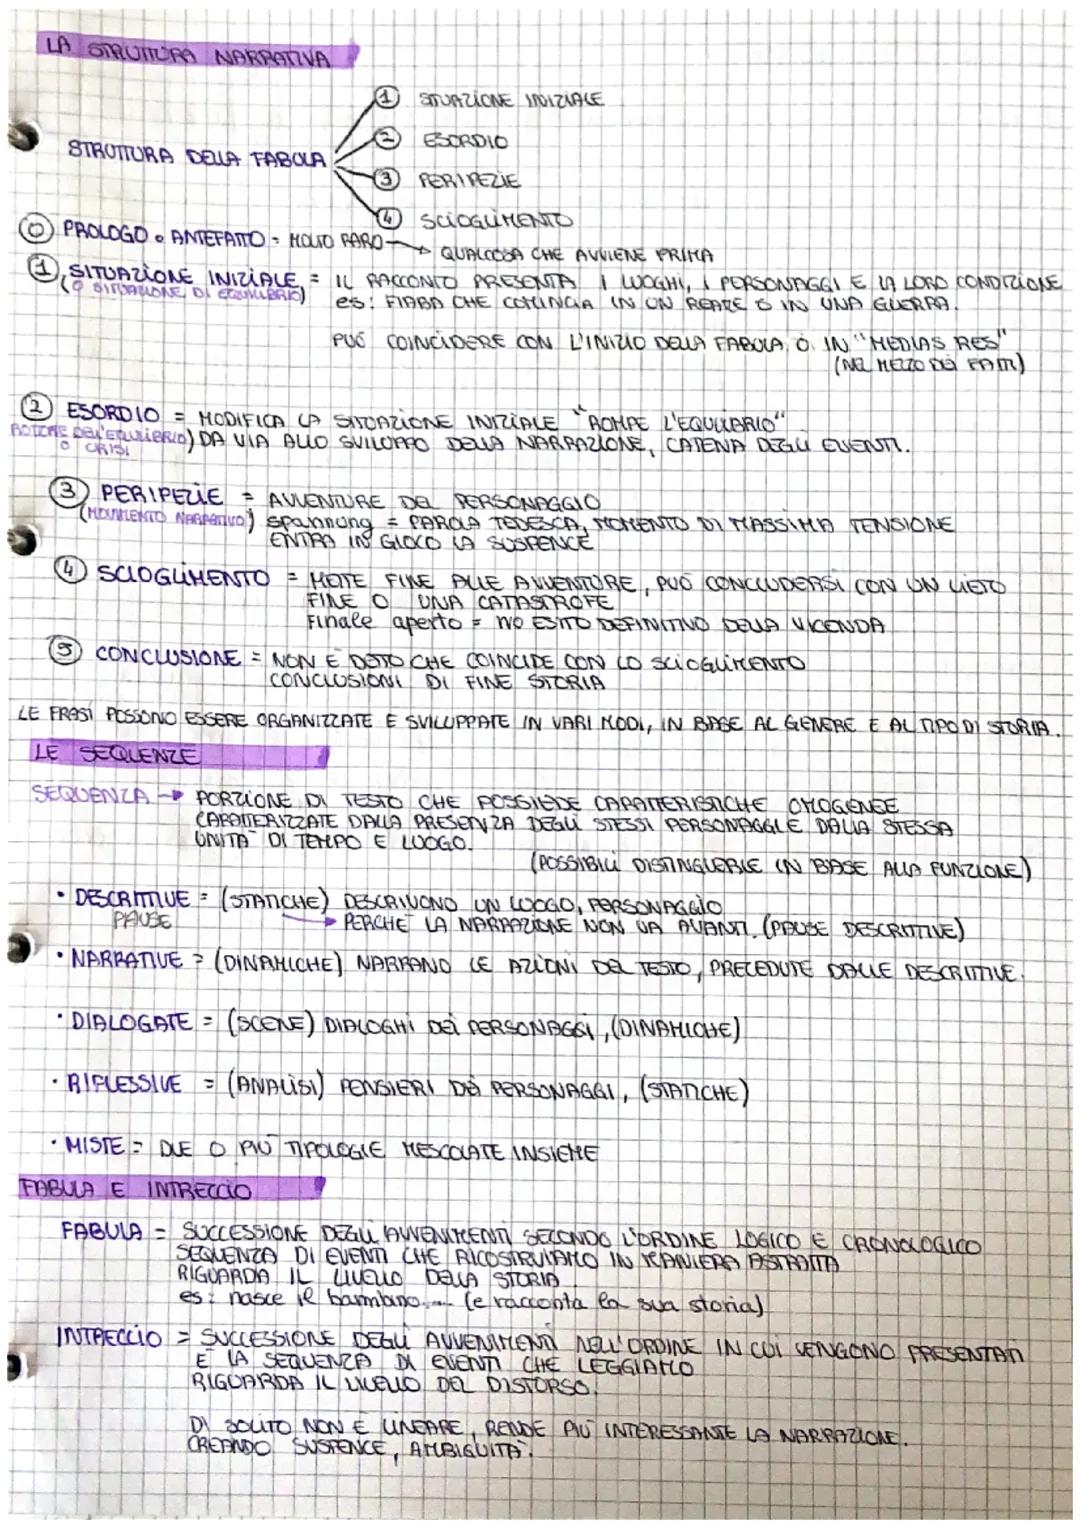 LA STRUTTURA NARRATIVA
① SITUAZIONE INIZIALE
② ESORDIO
STRUTTURA DELLA FABULA
③ PERIPEZIE
④ SCIOGLIMENTO
⓪ PROLOGO o ANTEFATTO = MOLTO RARO → QUALCOSA CHE AVVIENE PRIMA
① SITUAZIONE INIZIALE = IL RACCONTO PRESENTA I LUOGHI, I PERSONAGGI E LA LORO CONDIZIONE
(O SITUAZIONE DI EQUILIBRIO) es: FIABA CHE COMINCIA IN UN REAME O IN UNA GUERRA.
PUÓ COINCIDERE CON L'INIZIO DELLA FABULA, O IN "MEDIAS RES"
(NEL MEZZO DEI FATTI)
② ESORDIO = MODIFICA LA SITUAZIONE INIZIALE "ROMPE L'EQUILIBRIO"
ROTTURE DELL'EQUILIBRIO) DA VIA ALLO SVILUPPO DELLA NARRAZIONE, CATENA DEGLI EVENTI.
O CRISI
③ PERIPEZIE = AVVENTURE DEL PERSONAGGIO
(MOVIMENTO NARRATIVO) spannung = PAROLA TEDESCA, MOMENTO DI MASSIMA TENSIONE
ENTRA IN GIOCO LA SUSPENCE
④ SCIOGLIMENTO = METTE FINE ALLE AVVENTURE, PUÓ CONCLUDERSI CON UN LIETO
FINE O UNA CATASTROFE
Finale aperto = NO ESITO DEFINITIVO DELLA VICENDA
⑤ CONCLUSIONE = NON É DETTO CHE COINCIDE CON LO SCIOGLIMENTO
CONCLUSIONI DI FINE STORIA
LE FRASI POSSONO ESSERE ORGANIZZATE E SVILUPPATE IN VARI MODI, IN BASE AL GENERE E AL TIPO DI STORIA.
LE SEQUENZE
SEQUENZA → PORZIONE DI TESTO CHE POSSIEDE CARATTERISTICHE OMOGENEE
CARATTERIZZATE DALLA PRESENZA DEGLI STESSI PERSONAGGI E DALLA STESSA
UNITÁ DI TEMPO E LUOGO.
(POSSIBILI DISTINGUERLE IN BASE ALLA FUNZIONE)
• DESCRITTIVE = (STATICHE) DESCRIVONO UN LUOGO, PERSONAGGIO
PAUSE → PERCHÉ LA NARRAZIONE NON VA AVANTI. (PAUSE DESCRITTIVE)
• NARRATIVE = (DINAMICHE) NARRANO LE AZIONI DEL TESTO, PRECEDUTE DALLE DESCRITTIVE.
• DIALOGATE = (SCENE) DIALOGHI DEI PERSONAGGI, (DINAMICHE)
• RIFLESSIVE = (ANALISI) PENSIERI DEI PERSONAGGI, (STATICHE)
• MISTE = DUE O PIÚ TIPOLOGIE MESCOLATE INSIEME
FABULA E INTRECCIO
FABULA = SUCCESSIONE DEGLI AVVENIMENTI SECONDO L'ORDINE LOGICO E CRONOLOGICO
SEQUENZA DI EVENTI CHE RICOSTRUIAMO IN MANIERA ASTRATTA
RIGUARDA IL LIVELLO DELLA STORIA
es: nasce il bambino.... (e racconta la sua storia)
INTRECCIO = SUCCESSIONE DEGLI AVVENIMENTI NELL'ORDINE IN CUI VENGONO PRESENTATI
É LA SEQUENZA DI EVENTI CHE LEGGIAMO
RIGUARDA IL LIVELLO DEL DISTORSO.
DI SOLITO NON É LINEARE, RENDE PIÚ INTERESSANTE LA NARRAZIONE.
CREANDO SUSPENCE, AMBIGUITÁ.